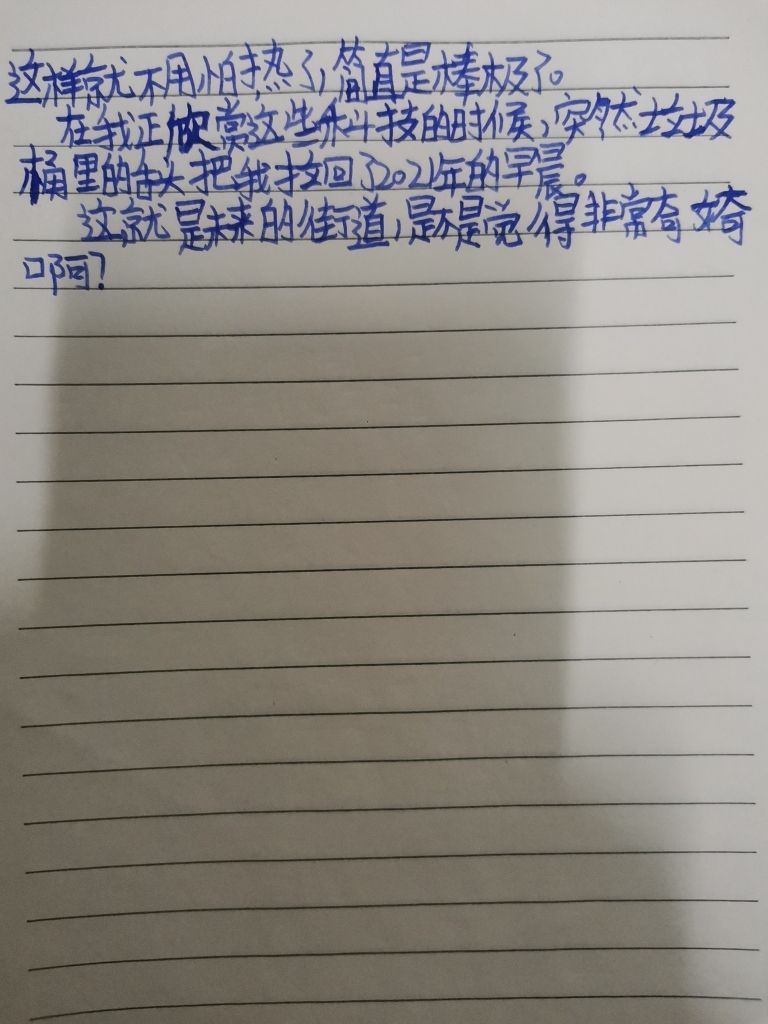 这样就不用怕热了,简直是棒极了。
在我正欣赏这些科技的时候,突然垃圾
桶里的舌头把我拉回了2021年的早晨。
这就是未来的街道,是不是觉得非常奇
啊?